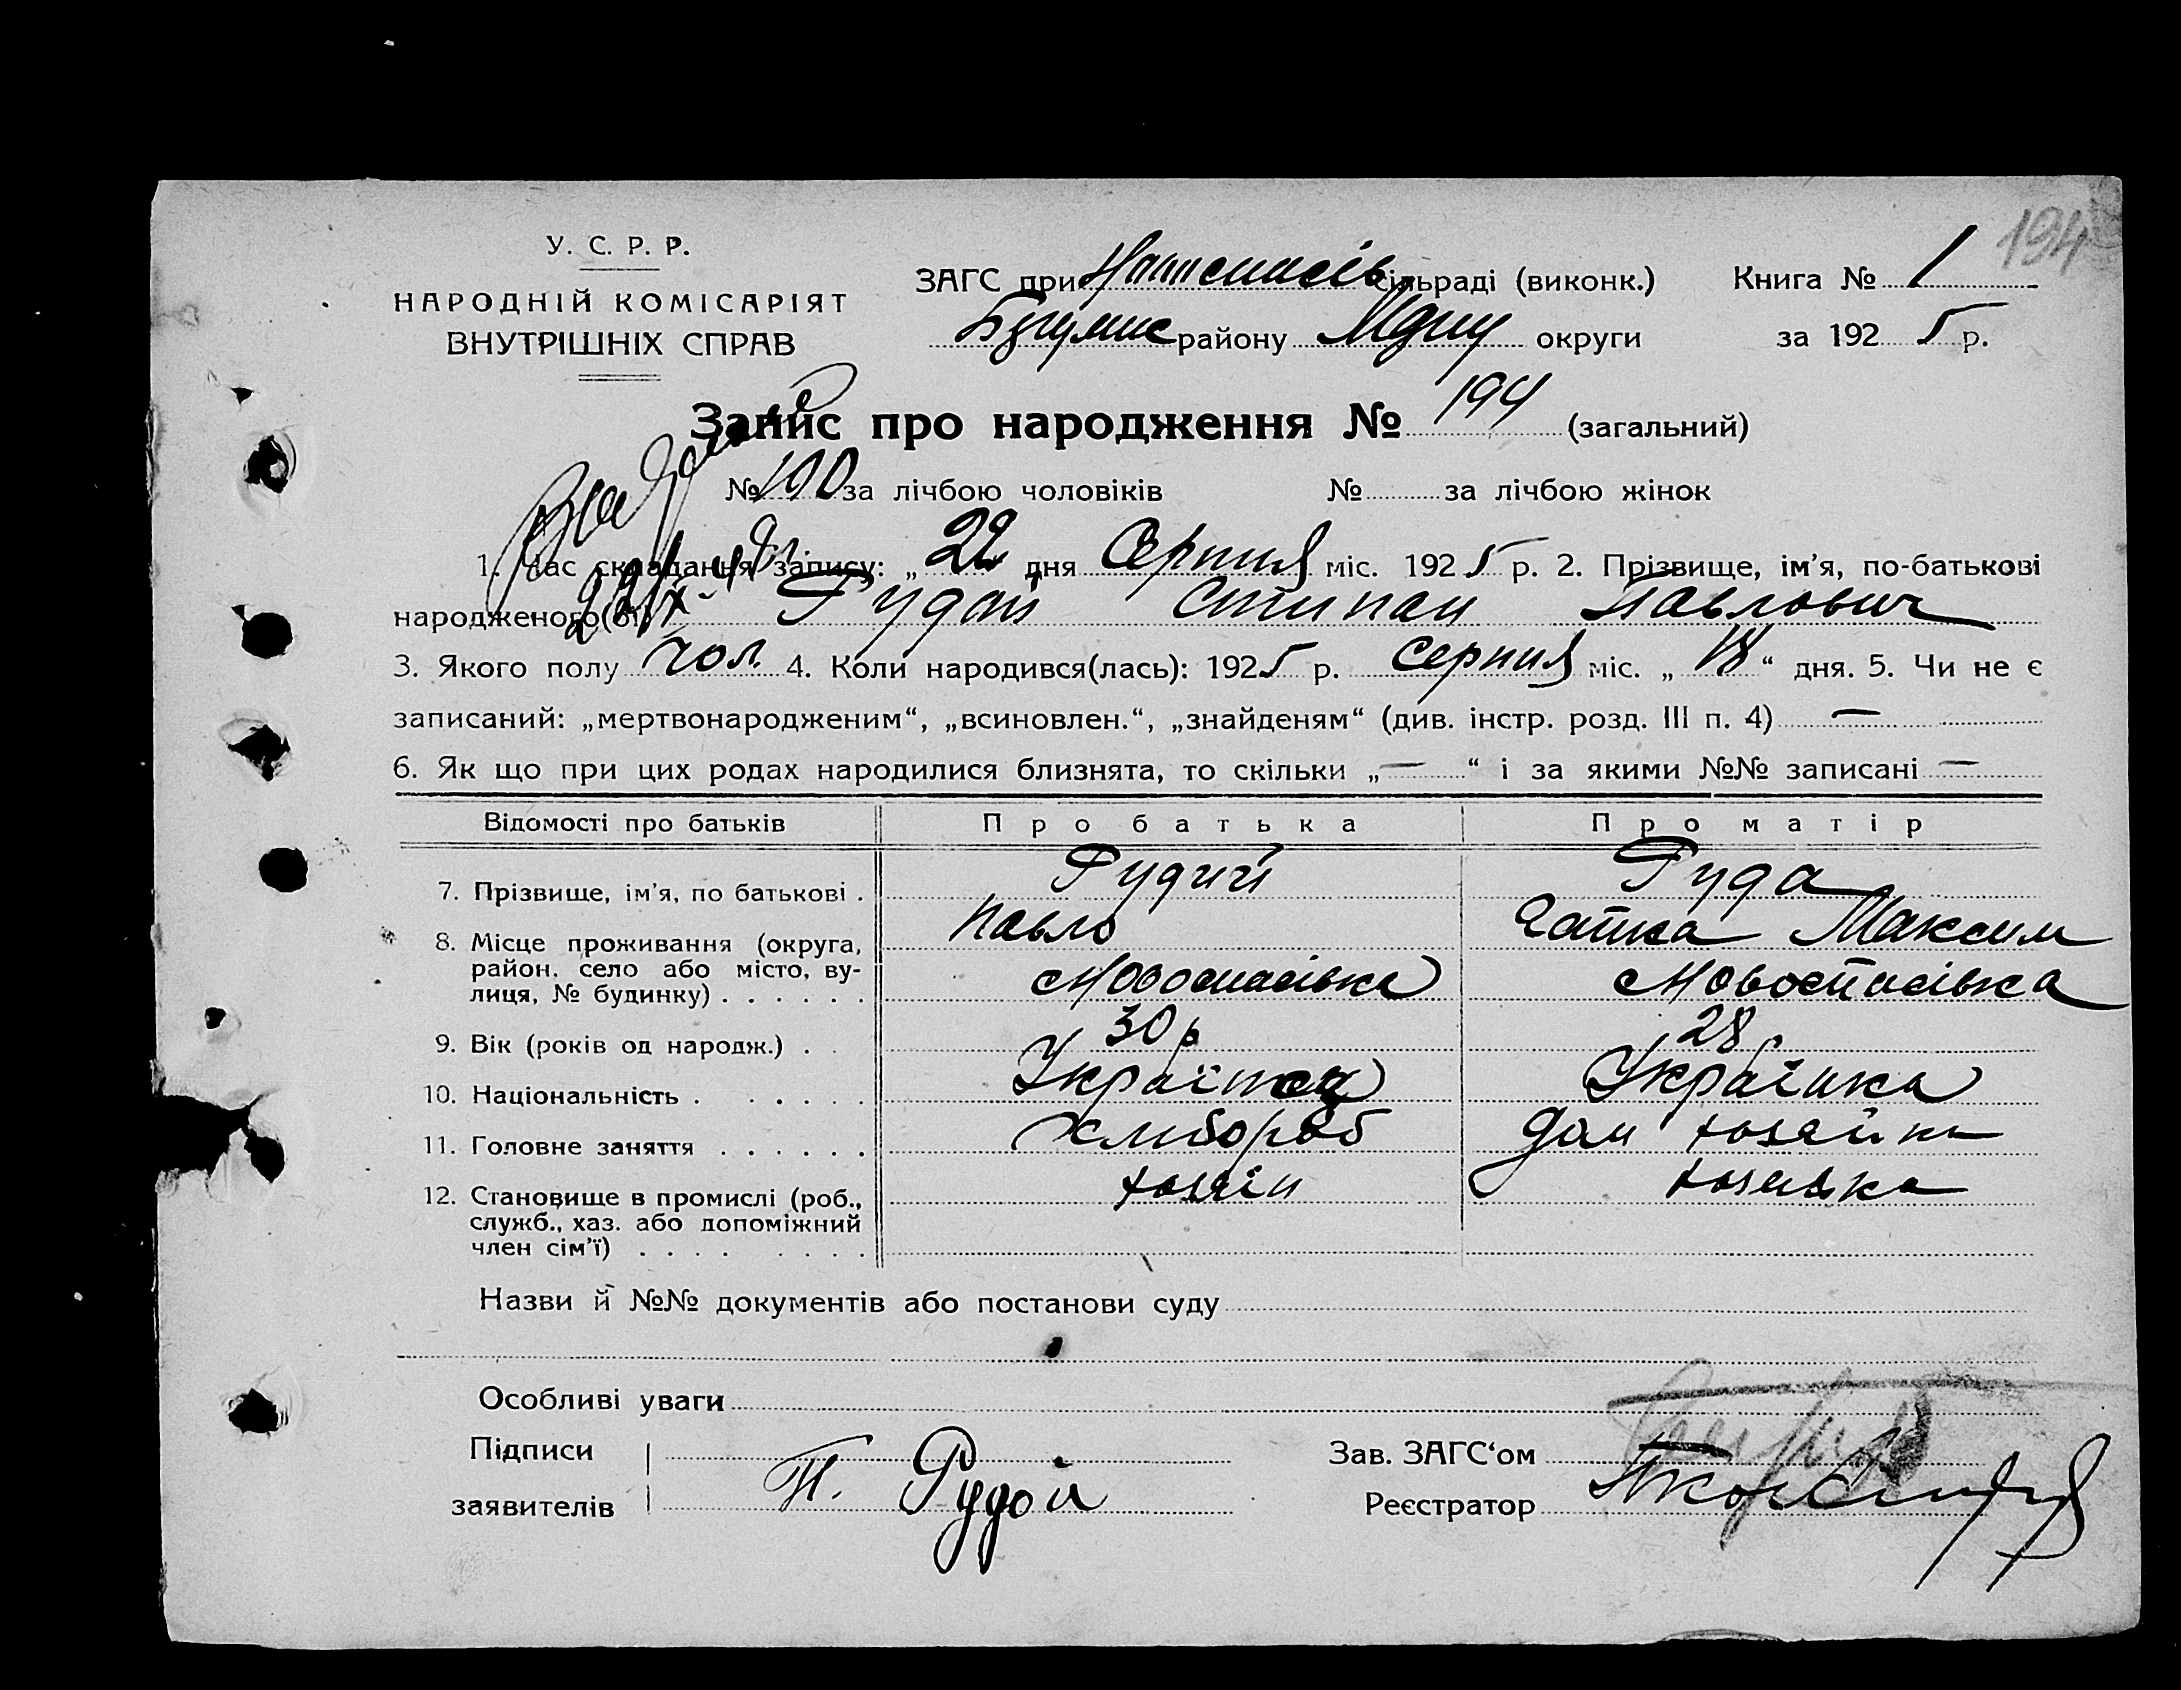 194
У. С. Р. Р.
НАРОДНІЙ КОМІСАРІЯТ
ВНУТРІШНІХ СПРАВ
ЗАГС при сільраді (виконк.) Книга № 1
району округи за 1925 р.
Запис про народження № 194 (загальний)
№ 100 за лічбою чоловіків № за лічбою жінок
1. Час складання запису: „22" дня Серпня міс. 1925 р. 2. Прізвище, ім'я, по-батькові
народженого(ої) Рудой Степан Павлович
3. Якого полу чол. 4. Коли народився(лась): 1925 р. Серпня міс. „18“ дня. 5. Чи не є
записаний: „мертвонародженим“, „всиновлен.“, „знайденям“ (див. інстр. розд. III п. 4) —
6. Як що при цих родах народилися близнята, то скільки „—“ і за якими №№ записані —
Відомості про батьків Про батька Про матір
7. Прізвище, ім'я, по батькові . Рудий Руда
Павло Максим
8. Місце проживання (округа, район, село або місто, вулиця, № будинку) . . . . . . Новоспасівка Новоспасівка
9. Вік (років од народж.) . . 30 р 28 р
10. Національність . . . . . . Українец Українка
11. Головне заняття . . . . . . Хлибороб Дом хозяйка
12. Становище в промислі (роб., служб., хаз. або допоміжний член сім'ї) . . . . . . . . хозяін хозяйка
Назви й №№ документів або постанови суду
Особливі уваги
Підписи
заявителів П. Рудой
Зав. ЗАГС‘ом
Реєстратор